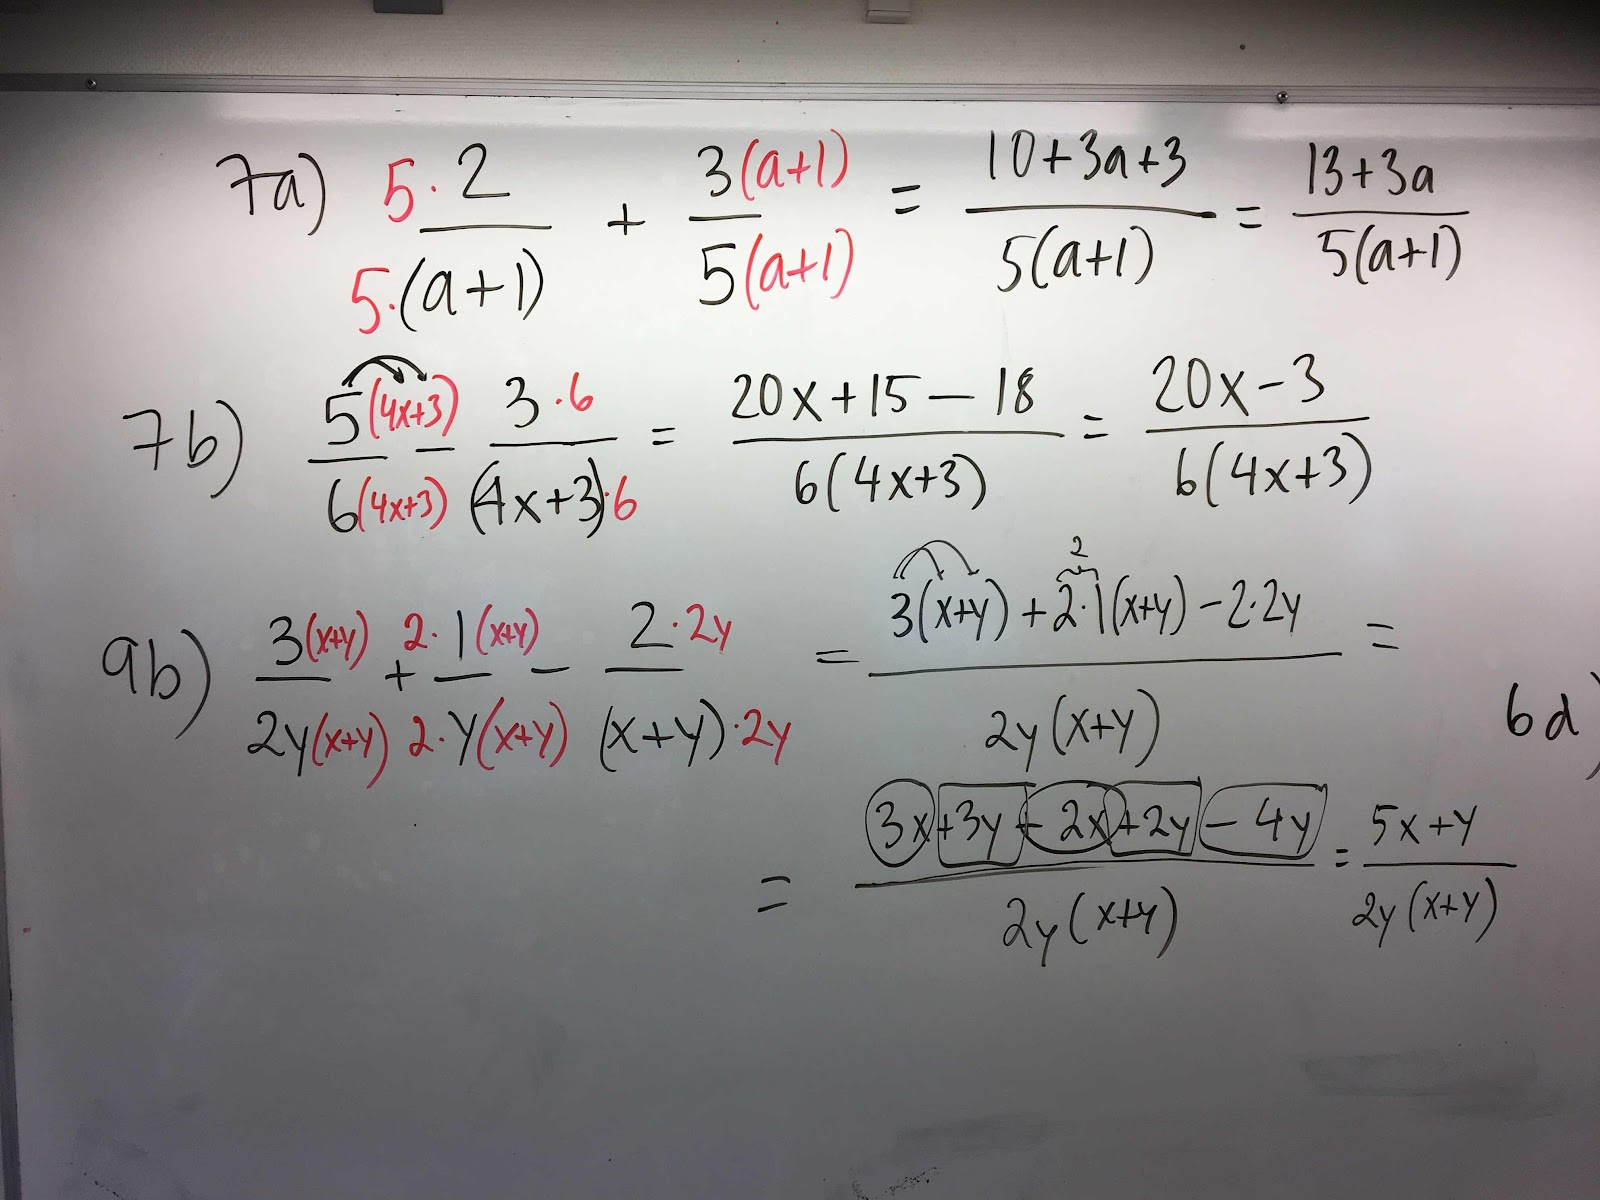 7a) 5·2/5·(a+1) + 3(a+1)/5(a+1) = 10+3a+3/5(a+1) = 13+3a/5(a+1)
7b) 5(4x+3)/6(4x+3) − 3·6/(4x+3)·6 = 20x+15−18/6(4x+3) = 20x−3/6(4x+3)
2
9b) 3(x+y)/2y(x+y) + 2·1(x+y)/2·y(x+y) − 2·2y/(x+y)·2y = 3(x+y)+2·1(x+y)−2·2y/2y(x+y) =
6d)
= 3x+3y+2x+2y−4y/2y(x+y) = 5x+y/2y(x+y)